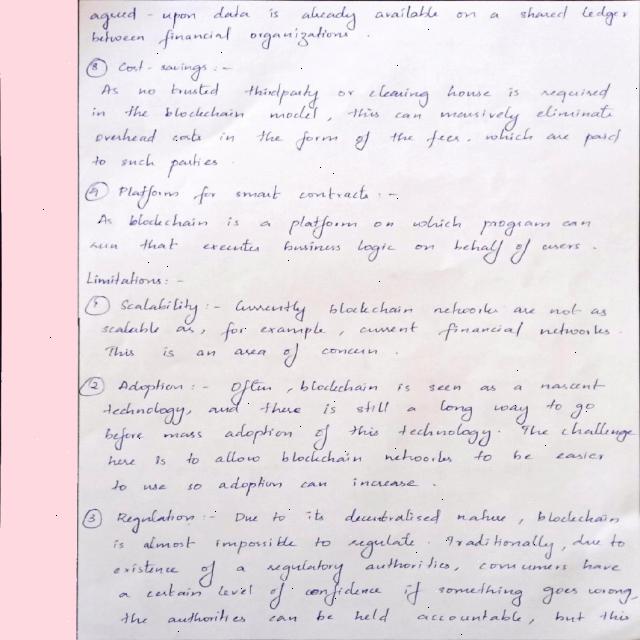 agreed - upon data is already available on a shared ledger
between financial organizations.
⑧ Cost-savings :-
As no trusted thirdparty or clearing house is required
in the blockchain model, this can massively eliminate
overhead costs in the form of the fees. which are paid
to such parties.
⑨ Platform for smart contracts :-
As blockchain is a platform on which program can
run that executes business logic on behalf of users.
Limitations: -
① Scalability :- Currently blockchain networks are not as
scalable as, for example, current financial networks.
This is an area of concern.
② Adoption :- Often, blockchain is seen as a nascent
technology, and there is still a long way to go
before mass adoption of this technology. The challenge
here is to allow blockchain networks to be easier
to use so adoption can increase.
③ Regulation :- Due to its decentralised nature, blockchain
is almost impossible to regulate. Traditionally, due to
existence of a regulatory authorities, consumers have
a certain level of confidence if something goes wrong,
the authorities can be held accountable, but this